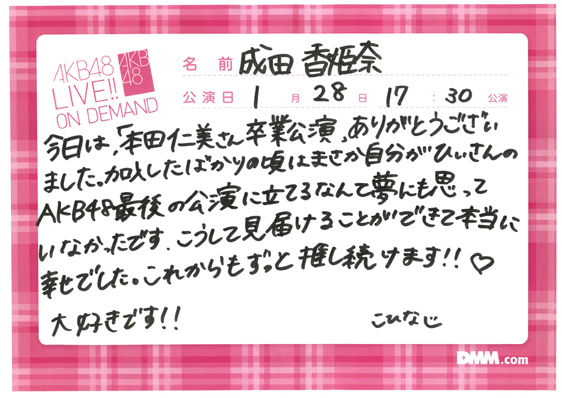 AKB48
LIVE!!
ON DEMAND
AKB
48
名前 成田 香姫奈
公演日 1月28日 17:30公演
今日は、「本田仁美さん卒業公演」ありがとうござい
ました。加入したばかりの頃はまさか自分がひぃさんの
AKB48最後の公演に立てるなんて夢にも思って
いなかったです。こうして見届けることができて本当に
幸せでした。これからもずっと推し続けます!!♡
大好きです!!
こひなじ
DMM.com